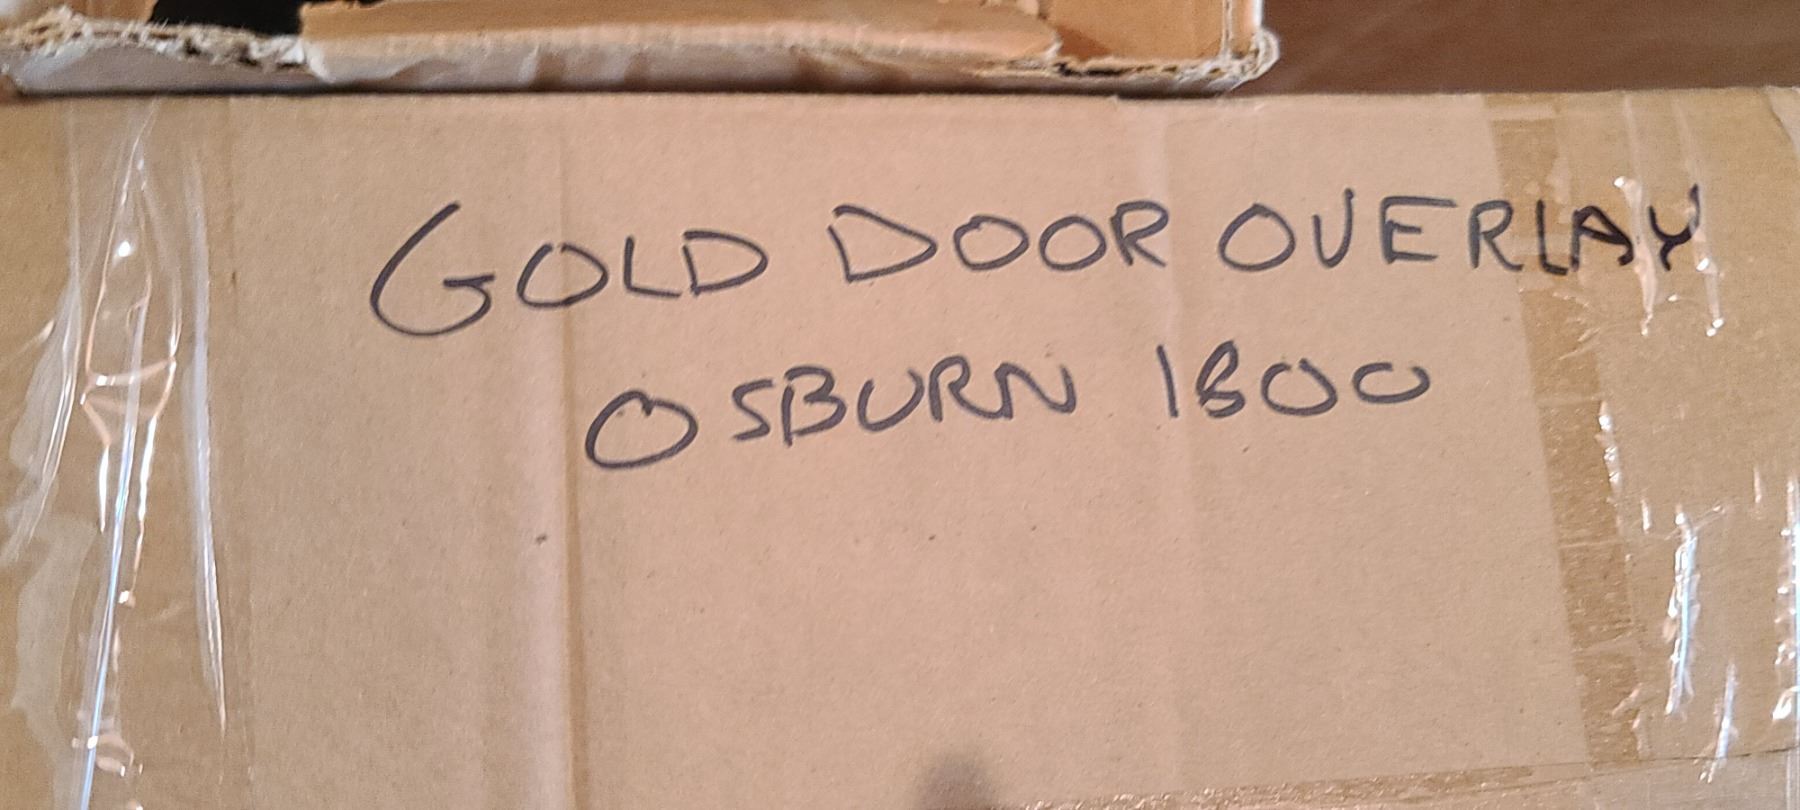 GOLD DOOR OVERLAY
OSBURN 1800